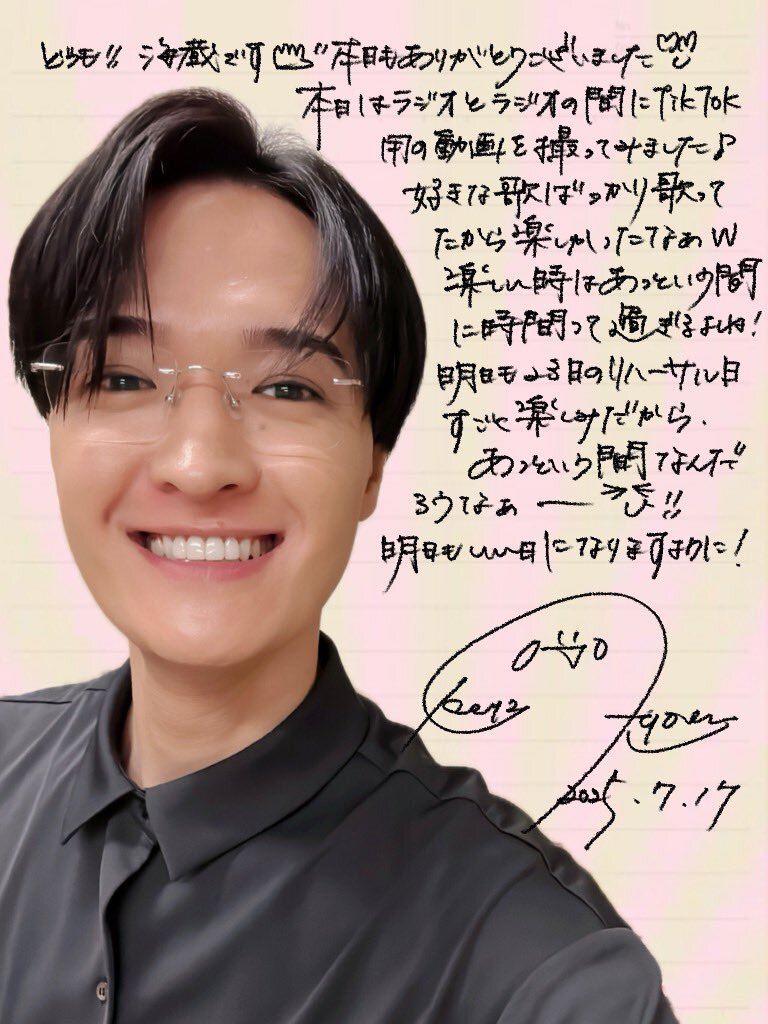 どうも!! 海蔵です 本日もありがとうございました
本日はラジオとラジオの間にTikTok
用の動画を撮ってみました♪
好きな歌ばっかり歌って
たから楽しかったなぁw
楽しい時はあっという間
に時間って過ぎるよね!
明日も23日のリハーサル日
すごく楽しみだから、
あっという間なんだ
ろうなぁー!!
明日もいい日になりますように!
2025.7.17